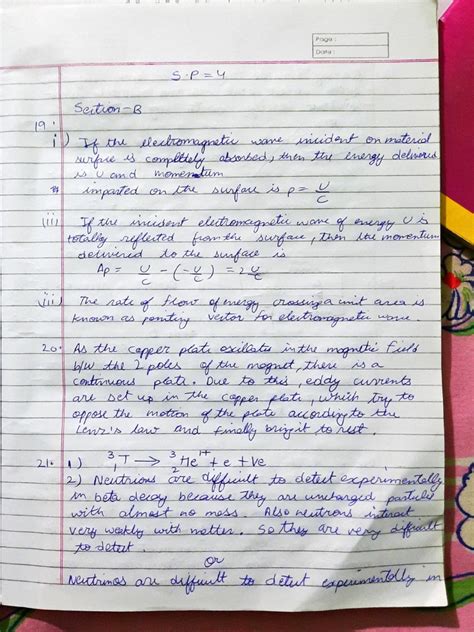 Page :
Date :
S.P = 4
Section-B
19.
i) If the electromagnetic wave incident on material
surface is completely absorbed, then the energy delivered
is U and momentum
imparted on the surface is p = U/C
iii) If the incident electromagnetic wave of energy U is
totally reflected from the surface, then the momentum
delivered to the surface is
Δp = U/C - (-U/C) = 2U/C
iii) The rate of flow of energy crossing a unit area is
known as poynting vector for electromagnetic wave.
20. As the copper plate oscillates in the magnetic field
b/w the 2 poles of the magnet, there is a
continuous plate. Due to this, eddy currents
are set up in the copper plate, which try to
oppose the motion of the plate according to the
Lenz's law and finally bring it to rest.
21. 1) ³₁T → ³₂He¹⁺ + e + ve
2) Neutrions are difficult to detect experimentally
in beta decay because they are uncharged particles
with almost no mass. Also neutrons interact
very weakly with matter. So they are very difficult
to detect.
or
Neutrinos are difficult to detect experimentally in